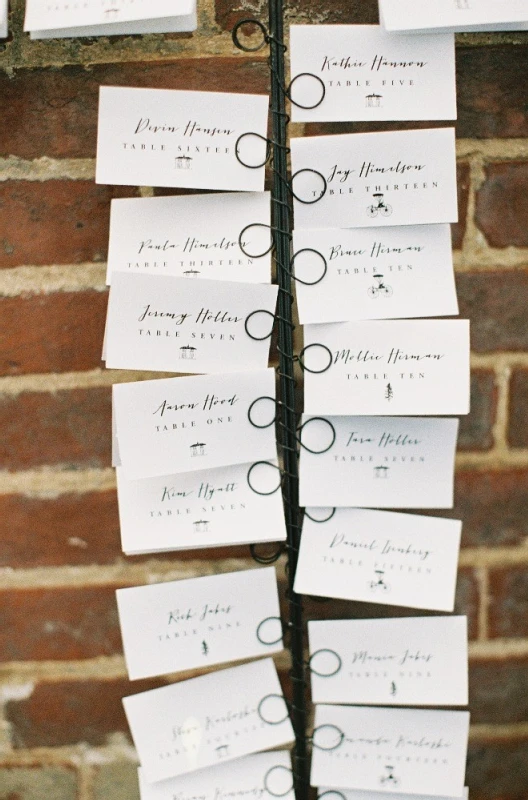 Kathie Hannon
TABLE FIVE
Devin Hansen
Jay Himelson
TABLE THIRTEEN
Paula Himelson
TABLE THIRTEEN
Bruce Hirman
TABLE TEN
Jeremy Holler
TABLE SEVEN
Mollie Hirman
TABLE TEN
Aaron Hood
TABLE ONE
Tara Holler
TABLE SEVEN
Kim Hyatt
TABLE SEVEN
Daniel Isenberg
TABLE FIFTEEN
Rick Jakes
TABLE NINE
Jakes
TABLE NINE
TABLE FOURTEEN
TABLE FOURTEEN